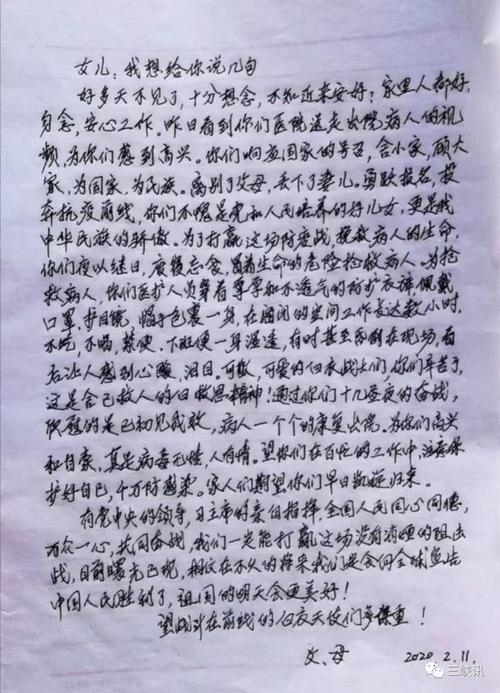 女儿：我想给你说几句
好多天不见了，十分想念，不知近来安好？家里人都好，
勿念，安心工作。昨日看到你们医院送走出院病人的视
频，为你们感到高兴。你们响应国家的号召，舍小家，顾大
家，为国家，为民族。离别了父母，丢下了妻儿。勇跃报名，投
奔抗疫前线，你们不愧是党和人民培养的好儿女，更是我
中华民族的骄傲。为了打赢这场防疫战，挽救病人的生命，
你们夜以继日，废寝忘食，冒着生命的危险抢救病人。为抢
救病人，你们医护人员穿着厚厚和不透气的防护衣裤，佩戴
口罩，护目镜，帽子包裹一身，在密闭的空间工作长达数小时，
不吃，不喝，禁便、下班便一身湿透，有时甚至昏倒在现场，看
后让人感到心酸，泪目。可敬，可爱的白衣战士们，你们辛苦了，
这是舍己救人的白 精神！通过你们十几昼夜的奋战，
欣慰的是已初见成效，病人一个个的康复出院。为你们高兴
和自豪，真是病毒无情，人有情。望你们在百忙的工作中，注意保
护好自己，千万防感染。家人们期望你们早日凯旋归来。
有党中央的领导，习主席的亲自指挥，全国人民同心同德，
万众一心，共同奋战，我们一定能打赢这场没有硝烟的阻击
战，目前曙光已现，相信在不久的将来我们是会向全球宣告
中国人民胜利了，祖国的明天会更美好！
望战斗在前线的白衣天使们多保重！
父、母 2020 2.11.
三峡讯